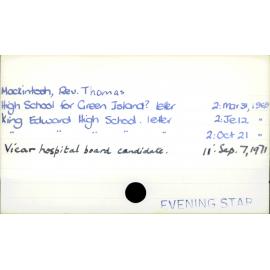 Mackintosh, Rev. Thomas
High School for Green Island? letter 2: Mar 31, 1965
King Edward High School. letter 2: Je 12 "
" " " " " 2: Oct 21 "
Vicar hospital board candidate. 11: Sep. 7, 1971
EVENING STAR